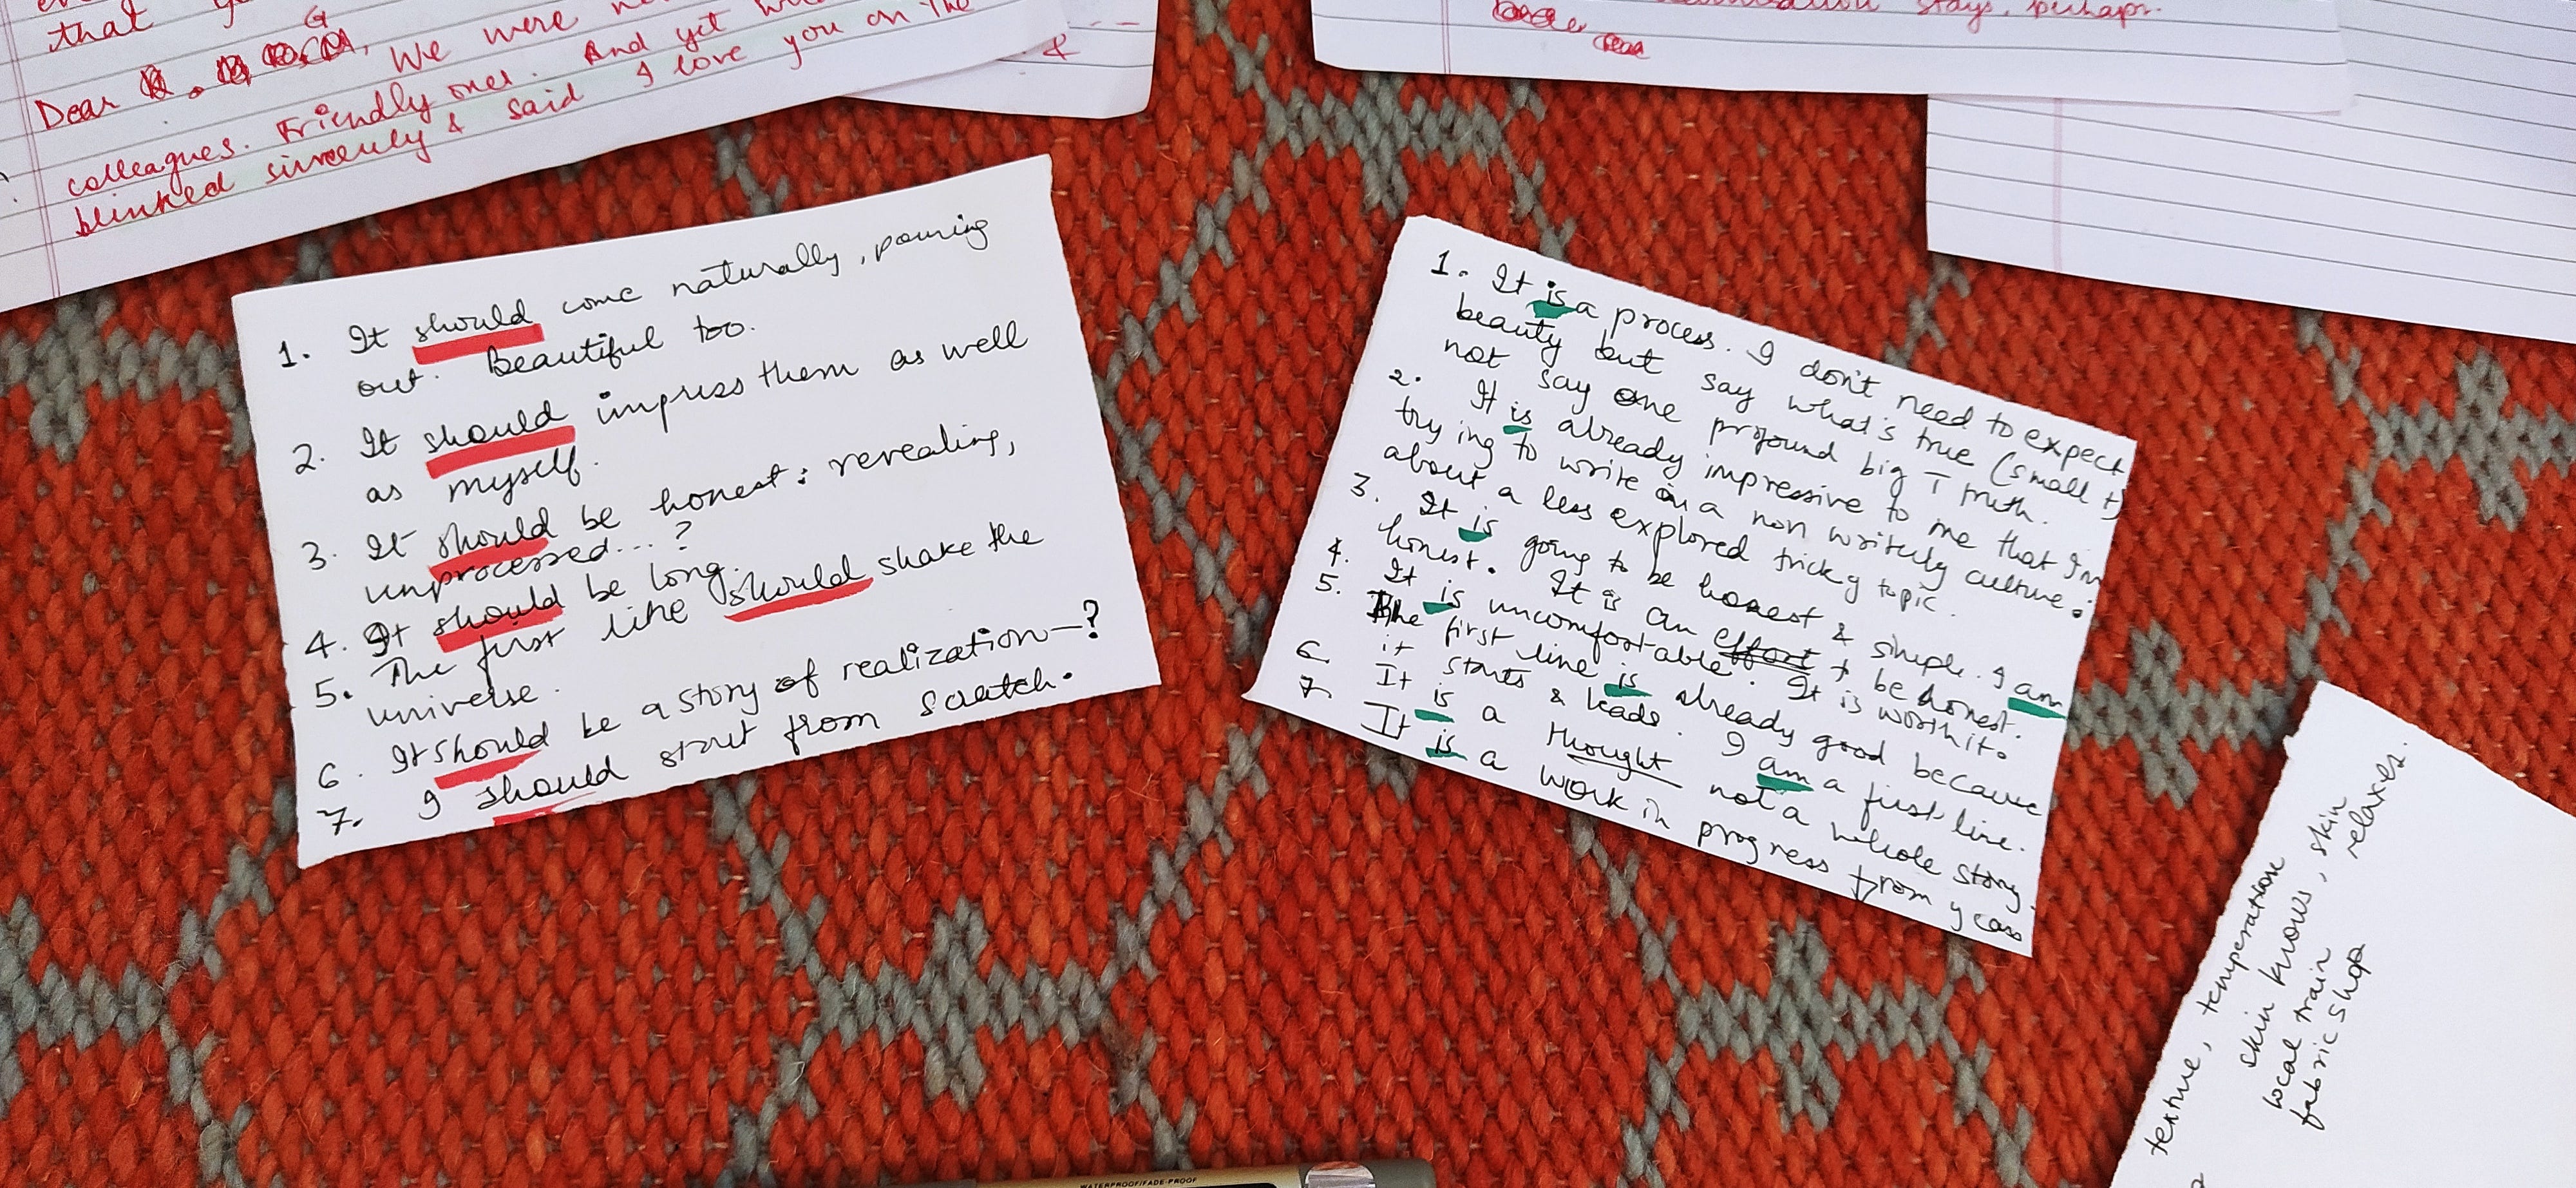 that
Dear
We were
colleagues. Friendly ones. And yet
blinked sincerely & said I love you on the
&
stays, perhaps.
1. It should come naturally, pouring
out. Beautiful too.
2. It should impress them as well
as myself.
3. It should be honest: revealing,
unprocessed...?
4. It should be long.
5. The first line should shake the
universe.
6. It should be a story of realization—?
7. I should start from scratch.
1. It is a process. I don't need to expect
beauty but say what's true (small t)
not say one profound big T truth.
2. It is already impressive to me that I'm
trying to write in a non writerly culture.
about a less explored tricky topic.
3. It is going to be honest & simple. I am
honest. It is an effort to be honest.
4. It is uncomfortable. It is worth it.
5. The first line is already good because
it starts & leads. I am a first line.
6. It is a thought not a whole story.
7. It is a work in progress from years
texture, temperature
skin knows, skin relaxes.
local train
fabric shop
WATERPROOF/FADE-PROOF